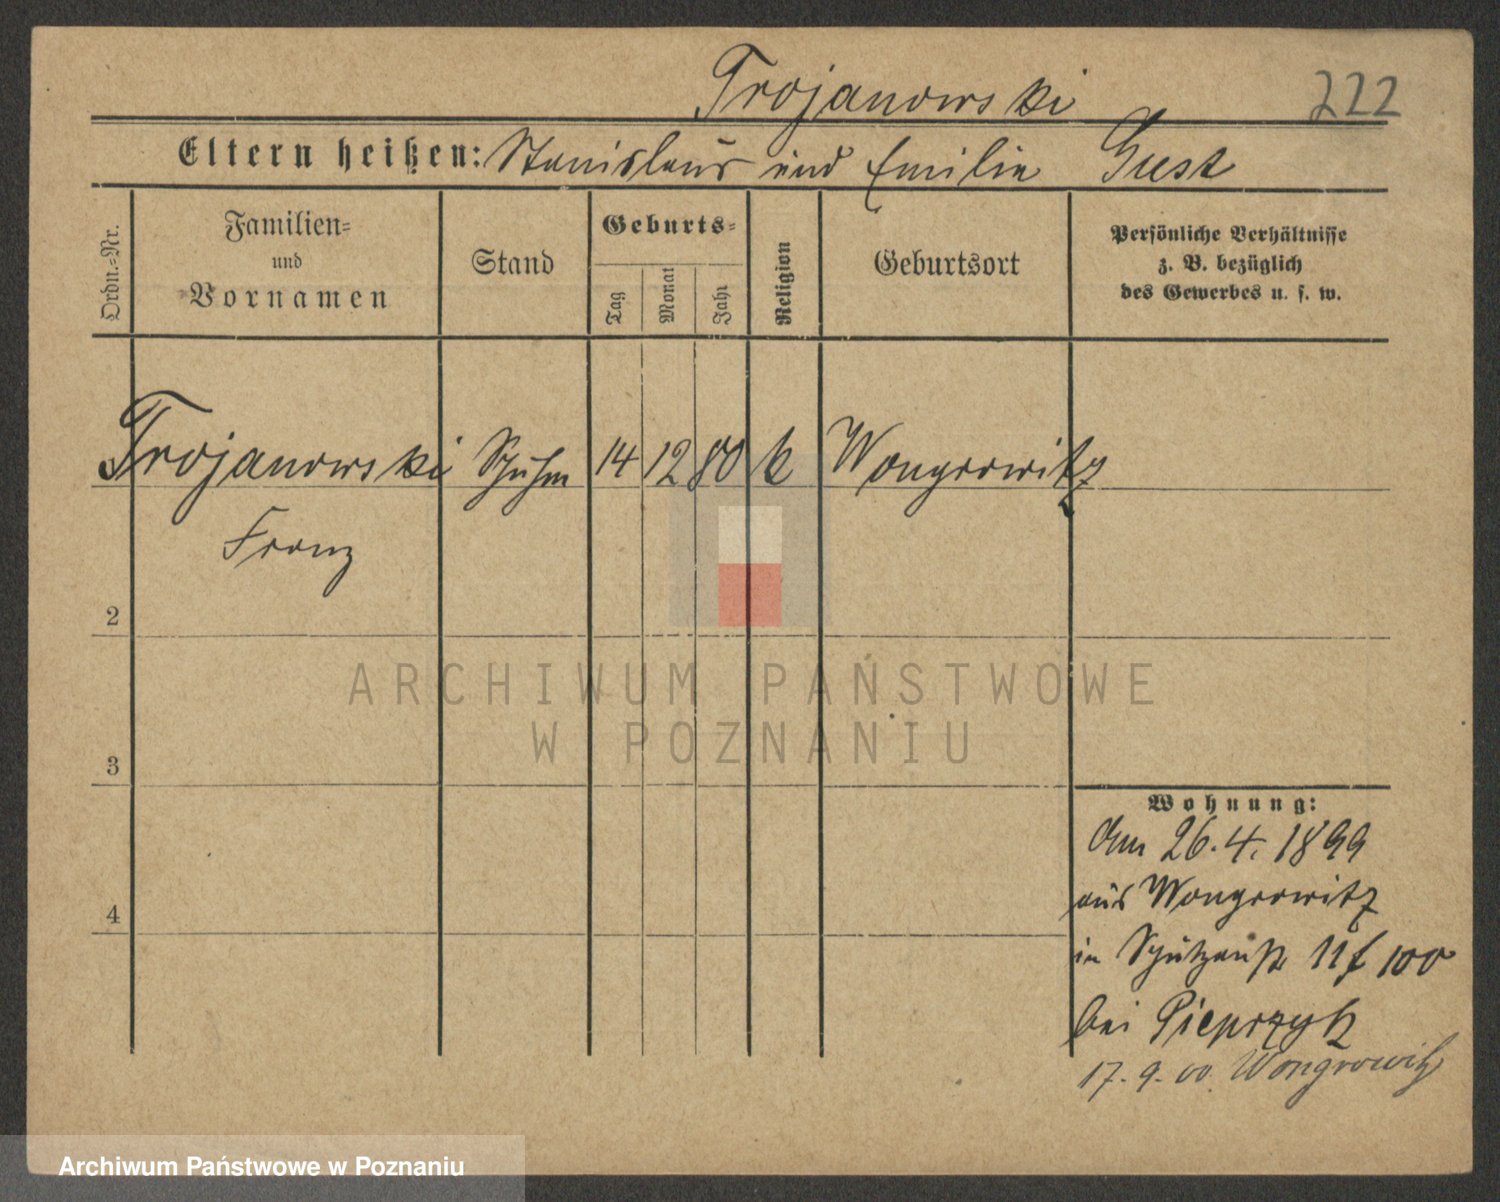 Trojanowski 222
Eltern heißen: Stanislaus und Emilie Gust
Ordn.-Nr.
Familien-
und
Vornamen
Stand
Geburts-
Tag
Monat
Jahr
Religion
Geburtsort
Persönliche Verhältnisse
z. B. bezüglich
des Gewerbes u. s. w.
Trojanowski Schuhm 14 12 80 k Wongrowitz
Franz
2
3
4
Wohnung:
den 26.4.1899
aus Wongrowitz
in Schützenstr 11 f 100
bei Pieprzyk
17.9.00 Wongrowitz
ARCHIWUM PAŃSTWOWE
W POZNANIU
Archiwum Państwowe w Poznaniu